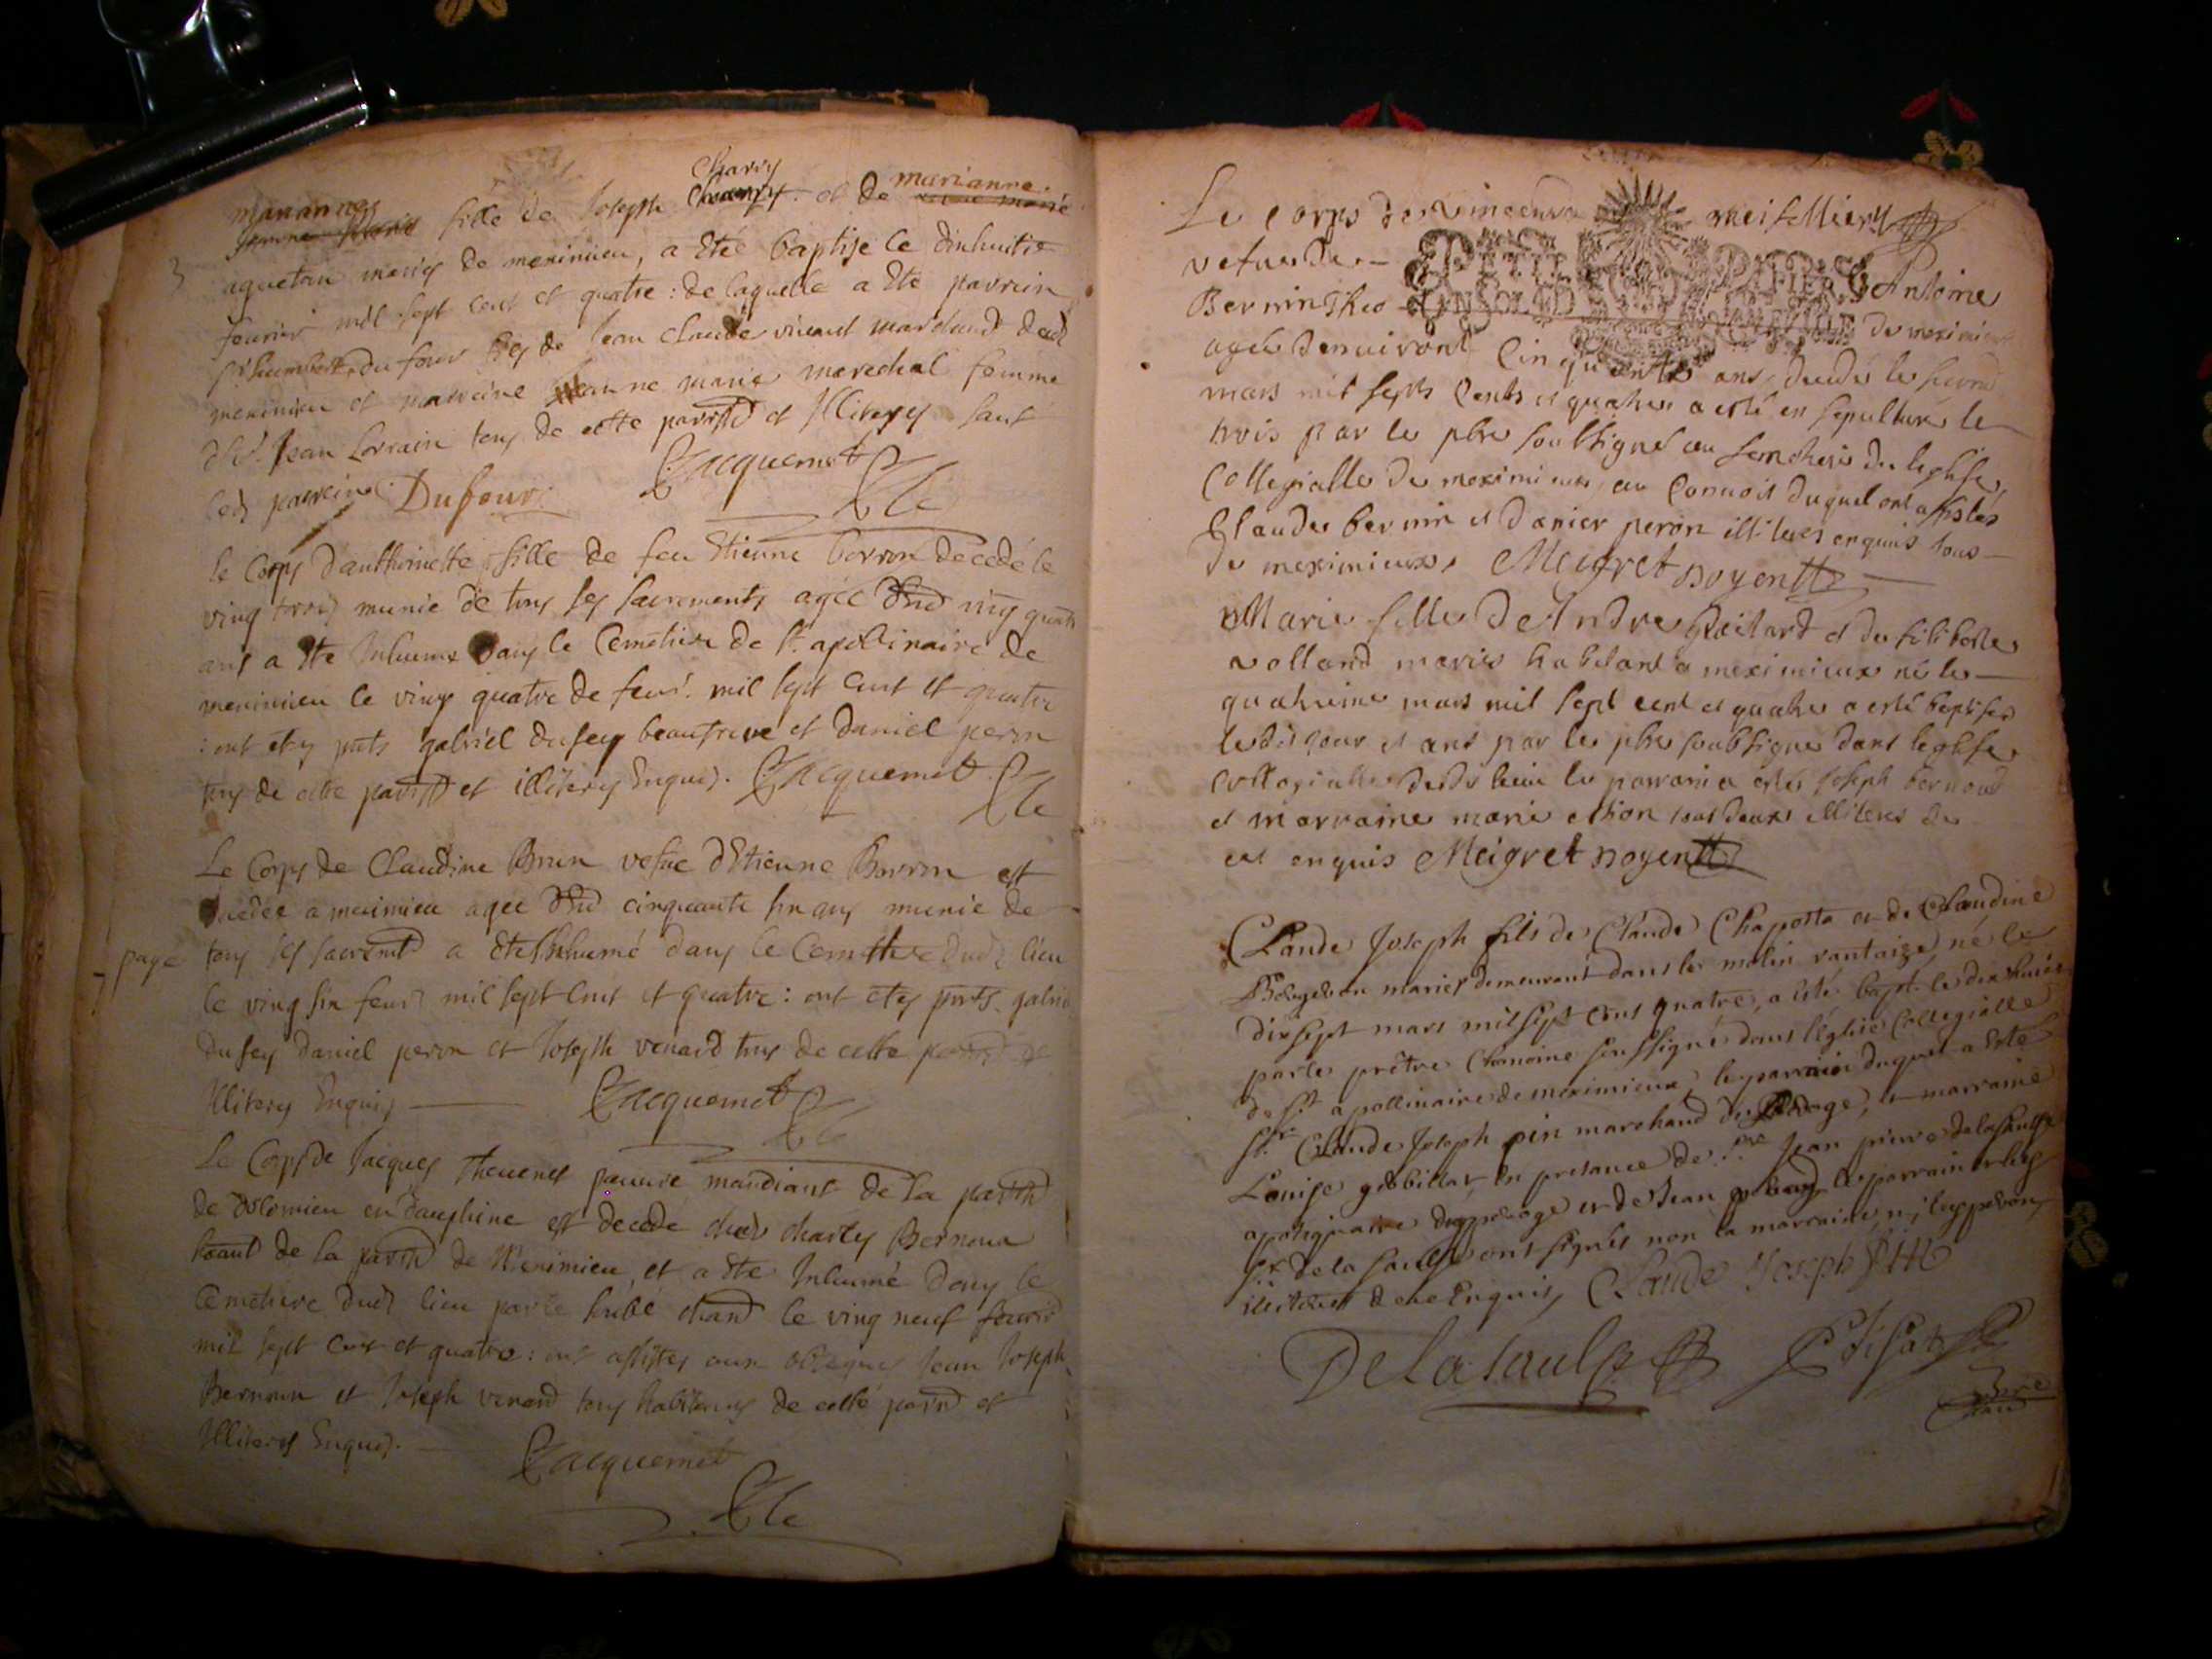 Charvy
mariannes fille de Joseph et de marianne
3
aquetan mariés de meximieu, a Eté baptisé le dixhuitie
feurier mil sept cent et quatre : de laquelle a Eté parrein
sr humbert du four fils de Jean Claude vivant marchand dud
meximieu et marreine Jeanne marie marechal femme
de Sr. Jean Lorrain tous de cette parrsse et Illiterez sauf
led parrein Dufour Jacquemet
le Corps d'anthoinette fille de feu Etienne borron decedé le
ving trois munie de tous ses sacrements agée d'Env ving quatre
ans a Eté Inhumé dans le Cemetiere de St. apollinaire de
meximieu le ving quatre de feur. mil sept cent et quatre
: ont étés pnts gabriel dufey beaufrere et Daniel peron
tous de cette parrsse et illiterez Enquis. Jacquemet
Le Corps de Claudine Brun vefue d'Etienne Borron est
decedée a meximieu agee d'Env cinquante six ans munie de
page
tous ses sacremts a Eté Inhumé dans le Cemetiere dud lieu
le ving six feur mil sept Cent et quatre : ont étés pnts. gabriel
dufey Daniel peron et Joseph venard tous de cette
Illiterez Enquis Jacquemet
Le Corps de Jacques Thevenet pauure mandiant de la parrsse
de dolomieu en dauphiné est decedé chez charles Bernoux
de la parrsse de Meximieu, et a Eté Inhumé dans le
Cemetiere dud lieu par le le ving neuf feurier
mil sept Cent et quatre : ont assistez aux obseques Jean Joseph
Bernoux et Joseph venard tous habitans de cette parrse et
Illiterez Enquis. Jacquemet
Le Corps de
vefue de Antoine
Bernin de meximieux
agée denuiront Cinquante ans, decedée le second
mars mil septs Cents et quatre a esté en sepulturé le
trois par le pbre soubsigné au semetiere de leglise
Collegialle de meximieux, au Conuois duquel ont assistés
Claude bernin et danier peron illiteres enquis tous
de meximieux Meigret doyen
Marie fille de Andre Gaillard et de filiberte
volland mariés habitant a meximieux né le
quatrieme mars mil sept cent et quatre a esté baptisée
ledit jour et ans par le pbre soubsigné dans leglise
collegialle dudit lieu le parrain a esté Joseph bernoud
et marraine marie tous deux illiteres de
ce enquis Meigret doyen
Claude Joseph fils de Claude Chaposta et de Claudine
mariés demeurant dans le molin vantaize, né le
dixsept mars mil sept Cens quatre, a été bapt. le dix huict
par le prêtre Chanoine soussigné dans l'églize Collegialle
de St. apollinaire de meximieux, le parrain duquel a Esté
Sr. Claude Joseph pin marchand du péage, et marraine
Louise gobbillat, en presance de Sre Jean pierre delasaulse
apotiquaire du péage et de Jean le parrain et led
Sr. de la saulse ont signés non la marraine, ni led
illiteres de ce Enquis, Claude Joseph PIN
Delasaulse